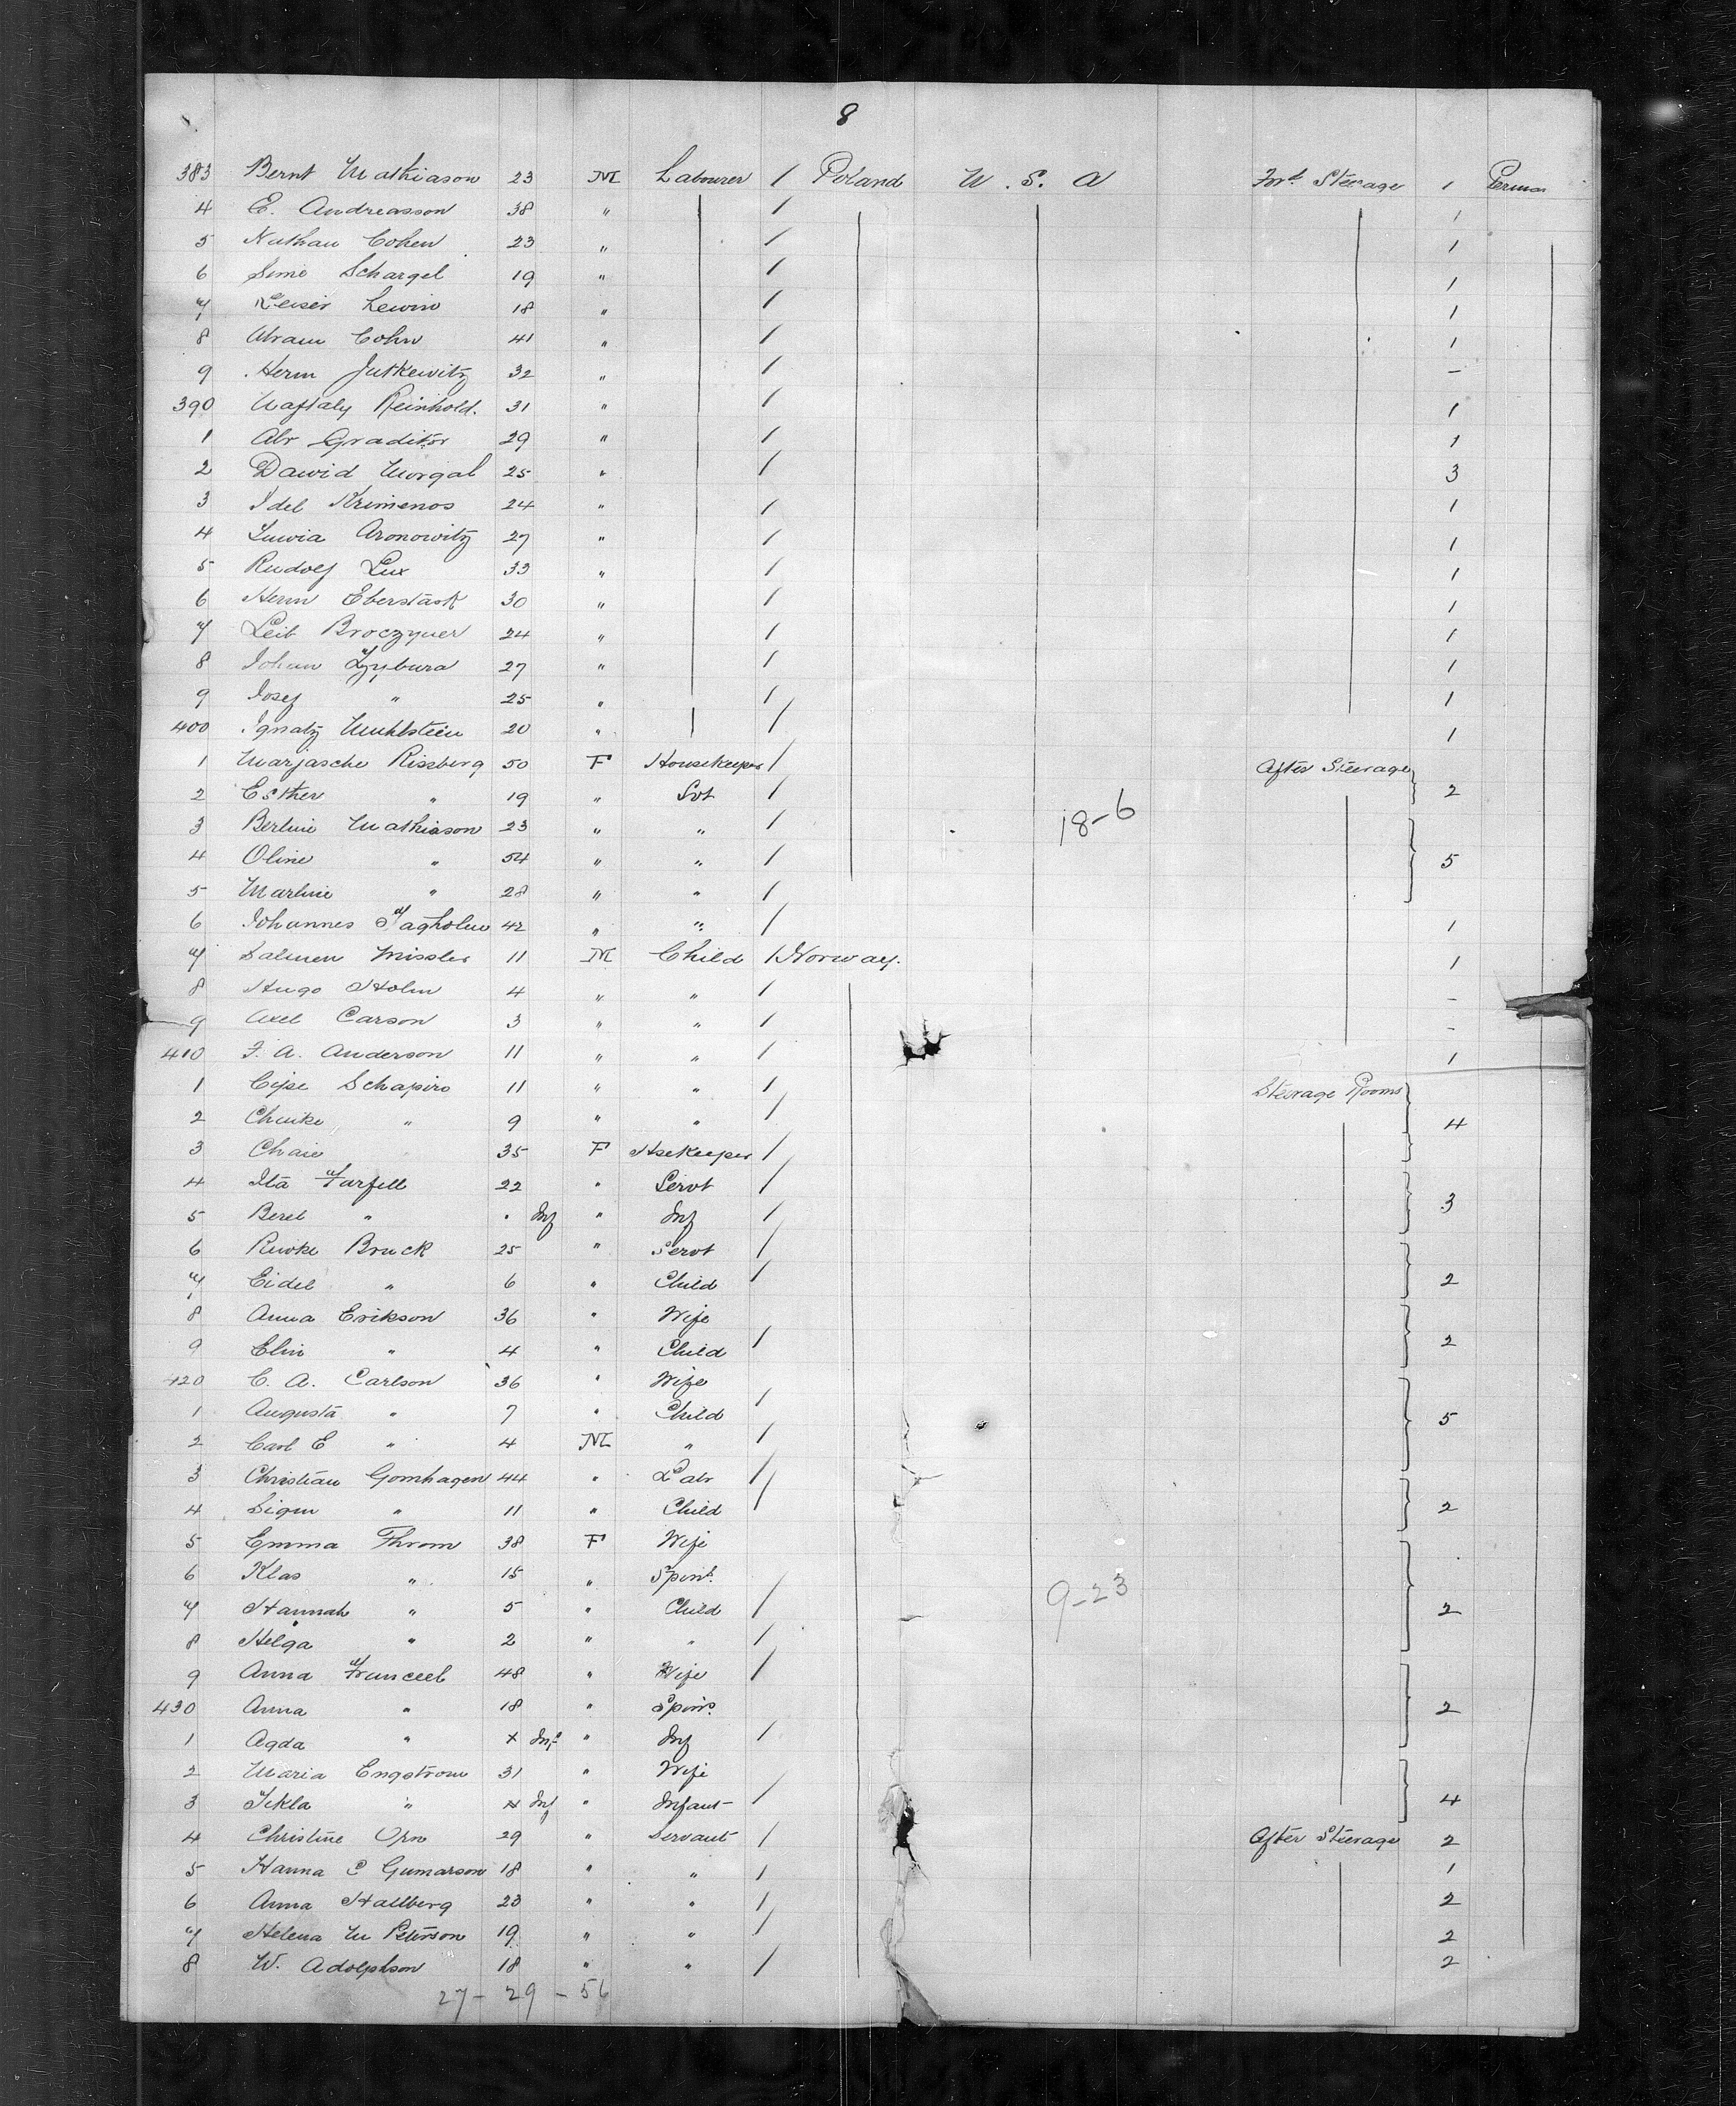 8
383 Bernt Mathiason 23 M Labourer / Poland U. S. A For'd Steerage 1 Perma
4 E. Andreasson 38 " / 1
5 Nathan Cohen 23 " / 1
6 Simo Schargel 19 " / 1
7 Leiser Lewin 18 " / 1
8 Abram Cohn 41 " / 1
9 Herm Jutkewitz 32 " / -
390 Naftaly Reinhold. 31 " / 1
1 Abr Graditor 29 " / 1
2 Dawid Morgal 25 " / 3
3 Idel Krimenos 24 " / 1
4 Aronowitz 27 " / 1
5 Rudolf Lux 33 " / 1
6 Herm Eberstask 30 " / 1
7 Leib Broczyner 24 " / 1
8 Johan Zybura 27 " / 1
9 Josef " 25 " / 1
400 Ignatz Muhlstein 20 " / 1
1 Marjasche Rissberg 50 F Housekeeper / After Steerage
2 Esther " 19 " Svt / 2
3 Berline Mathiason 23 " " / 18-6
4 Oline " 54 " " / 5
5 Marline " 28 " " /
6 Johannes Tagholm 42 " " / 1
7 Salmen Missler 11 M Child / Norway. 1
8 Hugo Holm 4 " " / -
9 Axel Carson 3 " " / -
410 F. A. Anderson 11 " " / 1
1 Cipe Schapiro 11 " " / Steerage Rooms
2 Chuike " 9 " " / 4
3 Chaie 35 F Hsekeeper /
4 Ita Furfell 22 " Servt /
5 Berel " " Inf " Inf / 3
6 Riwke Bruck 25 " Servt /
7 Eidel " 6 " Child / 2
8 Anna Erikson 36 " Wife
9 Elin " 4 " Child / 2
420 C. A. Carlson 36 " Wife
1 Augusta " 7 " Child / 5
2 Carl E " 4 M " /
3 Christian Gomhagen 44 " Labr /
4 Sigm " 11 " Child / 2
5 Emma Throm 38 F Wife
6 Klas " 15 " Spins.
7 Hannah " 5 " Child / 9-23 2
8 Helga " 2 " " /
9 Anna Frunceel 48 " Wife /
430 Anna " 18 " Spins. 2
1 Agda " x Inf " Inf /
2 Maria Engstrom 31 " Wife
3 Tekla " x Inf " Infant / 4
4 Christine Orn 29 " Servant / After Steerage 2
5 Hanna C Gumarson 18 " " / 1
6 Anna Hallberg 23 " " / 2
7 Helena M Peterson 19 " " / 2
8 W. Adolphson 18 " " / 2
27 - 29 - 56